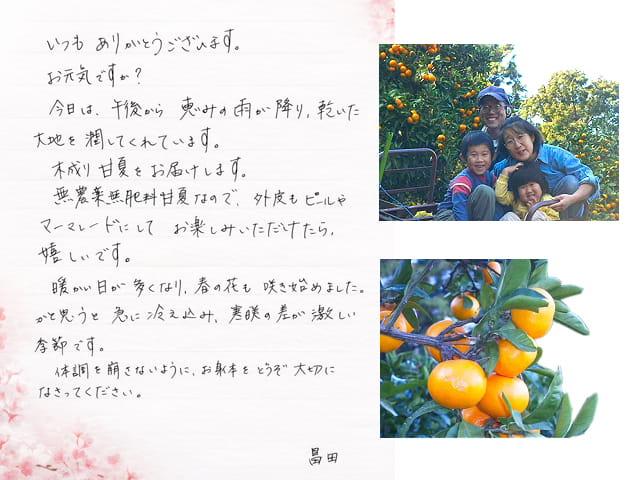 いつも ありがとうございます。
お元気ですか?
今日は、午後から 恵みの雨が降り、乾いた
大地を潤してくれています。
木成り甘夏をお届けします。
無農薬無肥料甘夏なので、外皮もピールや
マーマレードにして お楽しみいただけたら、
嬉しいです。
暖かい日が多くなり、春の花も 咲き始めました。
かと思うと 急に冷え込み、寒暖の差が激しい
季節です。
体調を崩さないように、お身体をどうぞ 大切に
なさってください。
昌田